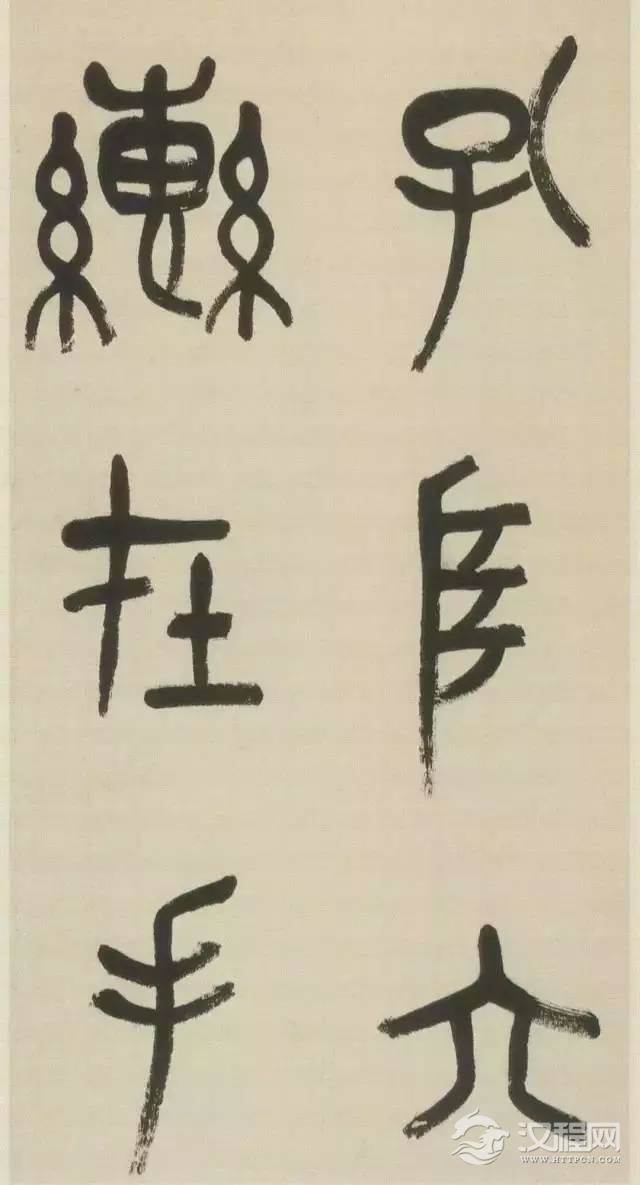 孔阜六
轡在手
汉程网
WWW.HTTPCN.COM